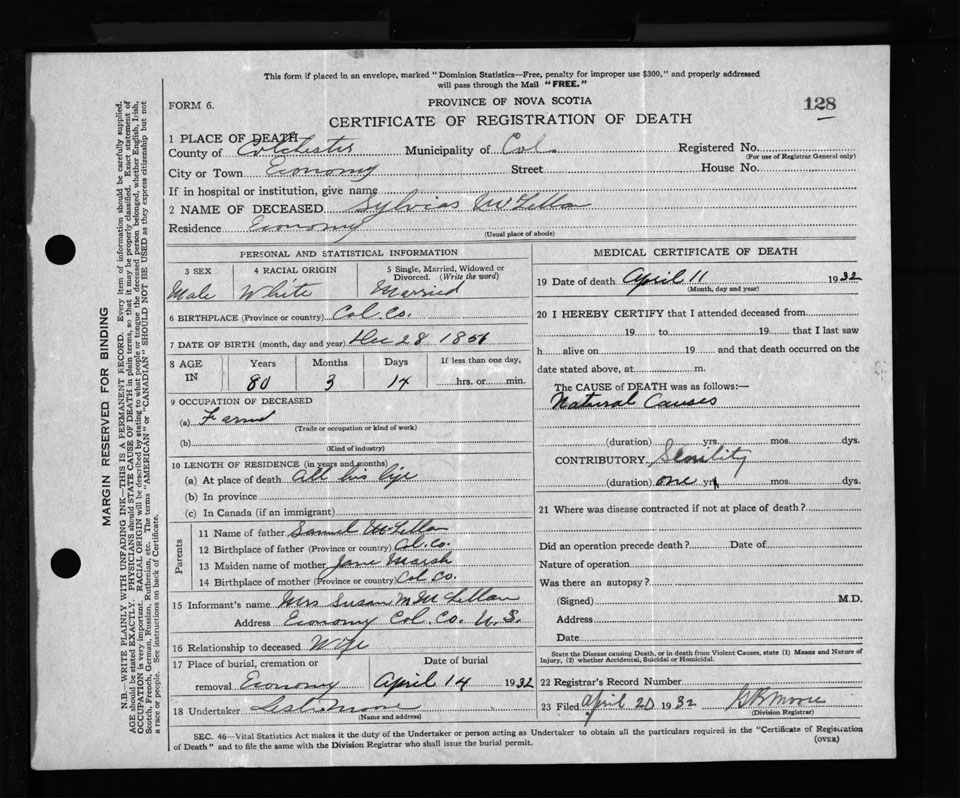 This form if placed in an envelope, marked "Dominion Statistics—Free, penalty for improper use $300," and properly addressed
will pass through the Mail "FREE."
FORM 6.
PROVINCE OF NOVA SCOTIA
128
CERTIFICATE OF REGISTRATION OF DEATH
1 PLACE OF DEATH
County of Colchester Municipality of Col. Registered No.
(For use of Registrar General only)
City or Town Economy Street House No.
If in hospital or institution, give name
2 NAME OF DECEASED Sylvias McLellan
Residence Economy
(Usual place of abode)
PERSONAL AND STATISTICAL INFORMATION
3 SEX 4 RACIAL ORIGIN 5 Single, Married, Widowed or Divorced. (Write the word)
Male White Married
6 BIRTHPLACE (Province or country) Col. Co.
7 DATE OF BIRTH (month, day and year) Dec 28 1851
8 AGE IN Years Months Days If less than one day,
80 3 14 hrs. or min.
9 OCCUPATION OF DECEASED
(a)
(Trade or occupation or kind of work)
(b)
(Kind of industry)
10 LENGTH OF RESIDENCE (in years and months)
(a) At place of death All his life
(b) In province
(c) In Canada (if an immigrant)
Parents
11 Name of father Samuel McLellan
12 Birthplace of father (Province or country) Col. Co.
13 Maiden name of mother Jane Marsh
14 Birthplace of mother (Province or country) Col Co.
15 Informant's name Mrs Susan M McLellan
Address Economy Col. Co. N. S.
16 Relationship to deceased Wife
17 Place of burial, cremation or Date of burial
removal Economy April 14 1932
18 Undertaker Moore
(Name and address)
MEDICAL CERTIFICATE OF DEATH
19 Date of death April 11 1932
(Month, day and year)
20 I HEREBY CERTIFY that I attended deceased from
19 to 19 that I last saw
h alive on 19 and that death occurred on the
date stated above, at m.
The CAUSE of DEATH was as follows:—
Natural Causes
(duration) yrs. mos. dys.
CONTRIBUTORY Senility
(duration) one yr mos. dys.
21 Where was disease contracted if not at place of death?
Did an operation precede death? Date of
Nature of operation
Was there an autopsy?
(Signed) M.D.
Address
Date
State the Disease causing Death, or in death from Violent Causes, state (1) Means and Nature of
Injury, (2) whether Accidental, Suicidal or Homicidal.
22 Registrar's Record Number
23 Filed April 20 1932 Moore
(Division Registrar)
SEC. 46—Vital Statistics Act makes it the duty of the Undertaker or person acting as Undertaker to obtain all the particulars required in the "Certificate of Registration
of Death" and to file the same with the Division Registrar who shall issue the burial permit.
(OVER)
MARGIN RESERVED FOR BINDING
N.B.—WRITE PLAINLY WITH UNFADING INK—THIS IS A PERMANENT RECORD. Every item of information should be carefully supplied.
AGE should be stated EXACTLY. PHYSICIANS should STATE CAUSE OF DEATH in plain terms, so that it may be properly classified. Exact statement of
OCCUPATION is very important. RACIAL ORIGIN will be described by stating to what people or tongue the deceased person belonged, whether English, Irish,
Scotch, French, German, Russian, Ruthenian, etc. The terms "AMERICAN" or "CANADIAN" SHOULD NOT BE USED as they express citizenship but not
a race or people. See instructions on back of Certificate.